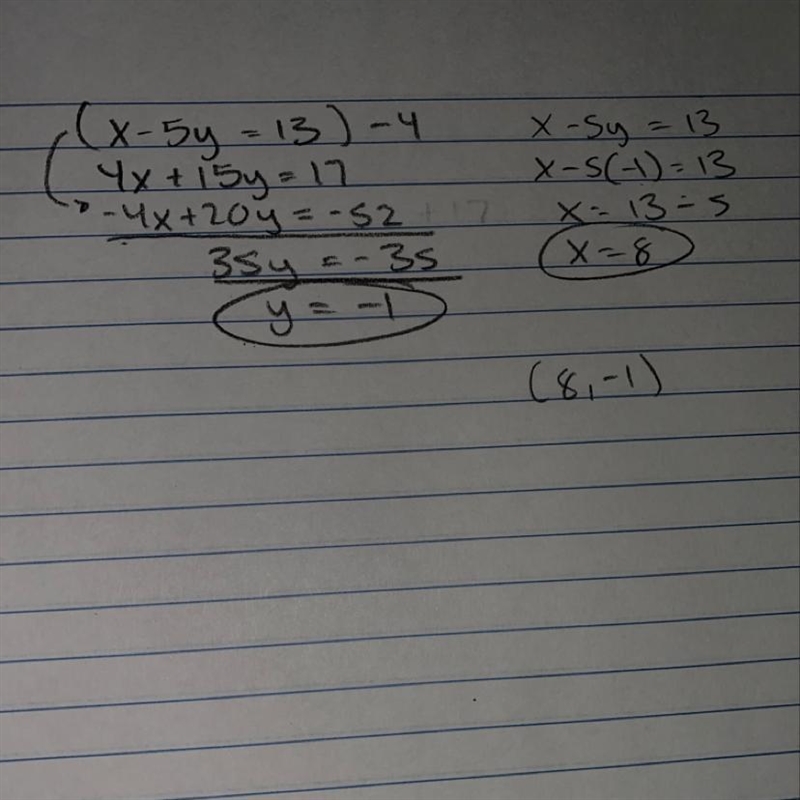 (x - 5y = 13) - 4
4x + 15y = 17
-4x + 20y = -52 + 17
35y = -35
y = -1
x - 5y = 13
x - 5(-1) = 13
x = 13 - 5
x = 8
(8, -1)